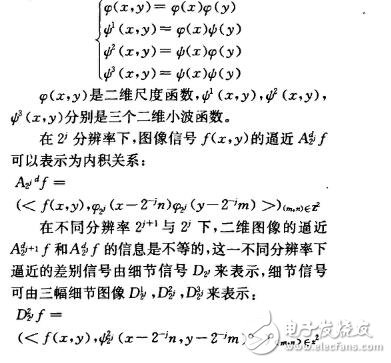 φ(x,y)=φ(x)φ(y)
ψ¹(x,y)=φ(x)ψ(y)
ψ²(x,y)=ψ(x)φ(y)
ψ³(x,y)=ψ(x)ψ(y)
φ(x,y)是二维尺度函数,ψ¹(x,y),ψ²(x,y),
ψ³(x,y)分别是三个二维小波函数。
在 2ʲ 分辨率下,图像信号 f(x,y)的逼近 A₂ʲᵈf
可以表示为内积关系:
A₂ʲᵈf=
(<f(x,y),φ₂ʲ(x−2⁻ʲn)φ₂ʲ(y−2⁻ʲm)>)₍ₘ,ₙ₎∈z²
在不同分辨率 2ʲ⁺¹与 2ʲ 下,二维图像的逼近
A₂ʲ⁺¹ᵈf 和 A₂ʲᵈf 的信息是不等的,这一不同分辨率下
逼近的差别信号由细节信号 D₂ʲ 来表示,细节信号
可由三幅细节图像 D₂ʲ¹,D₂ʲ²,D₂ʲ³来表示:
D₂ʲ²f=
(<f(x,y),ψ₂ʲ²(x−2⁻ʲn,y−2⁻ʲm)
电子发烧友
www.elecfans.com